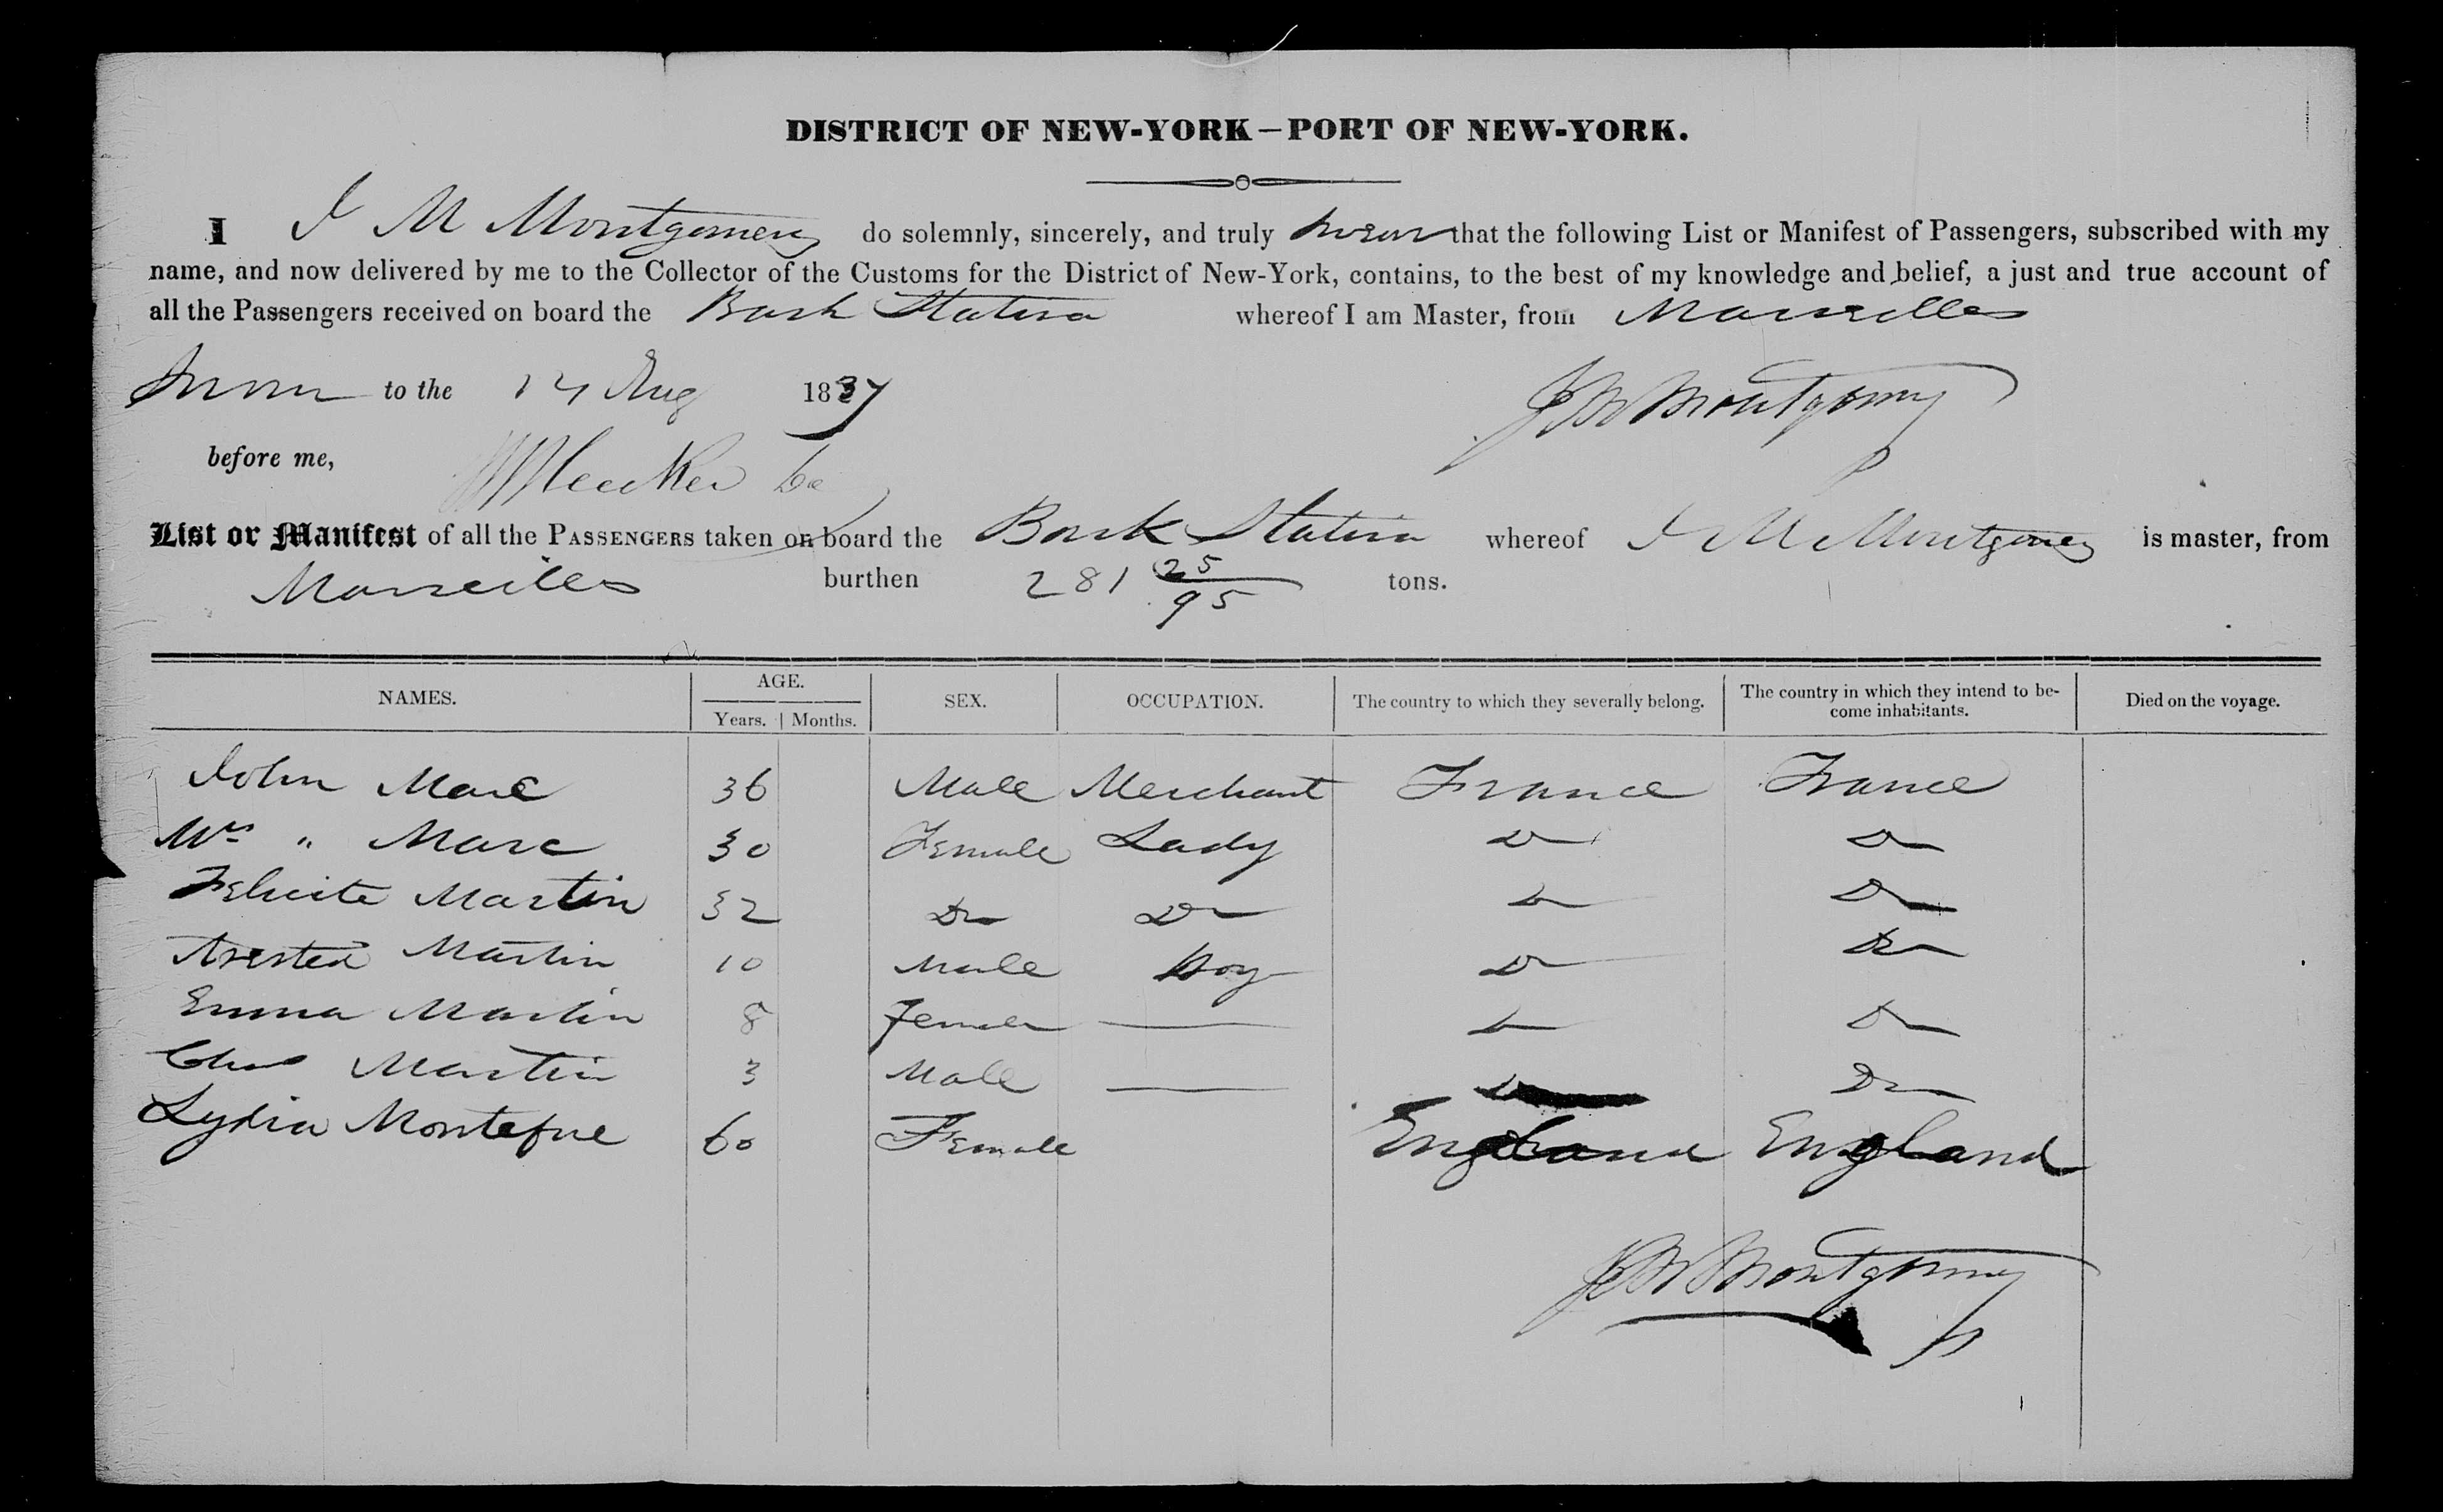 DISTRICT OF NEW-YORK—PORT OF NEW-YORK.
I J M Montgomery do solemnly, sincerely, and truly swear that the following List or Manifest of Passengers, subscribed with my
name, and now delivered by me to the Collector of the Customs for the District of New-York, contains, to the best of my knowledge and belief, a just and true account of
all the Passengers received on board the Bark Statira whereof I am Master, from Marseilles
Sworn to the 14 Aug 1837
J M Montgomery
before me,
List or Manifest of all the PASSENGERS taken on board the Bark Statira whereof J M Montgomery is master, from
Marseilles burthen 281 25/95 tons.
NAMES. AGE. Years. Months. SEX. OCCUPATION. The country to which they severally belong. The country in which they intend to become inhabitants. Died on the voyage.
John Marc 36 Male Merchant France France
Mrs " Marc 30 Female Lady Do Do
Felicite Martin 32 Do Do Do Do
Martin 10 Male Boy Do Do
Emma Martin 8 Female — Do Do
Chas Martin 3 Male — Do Do
Lydia Montefue 60 Female England England
J M Montgomery